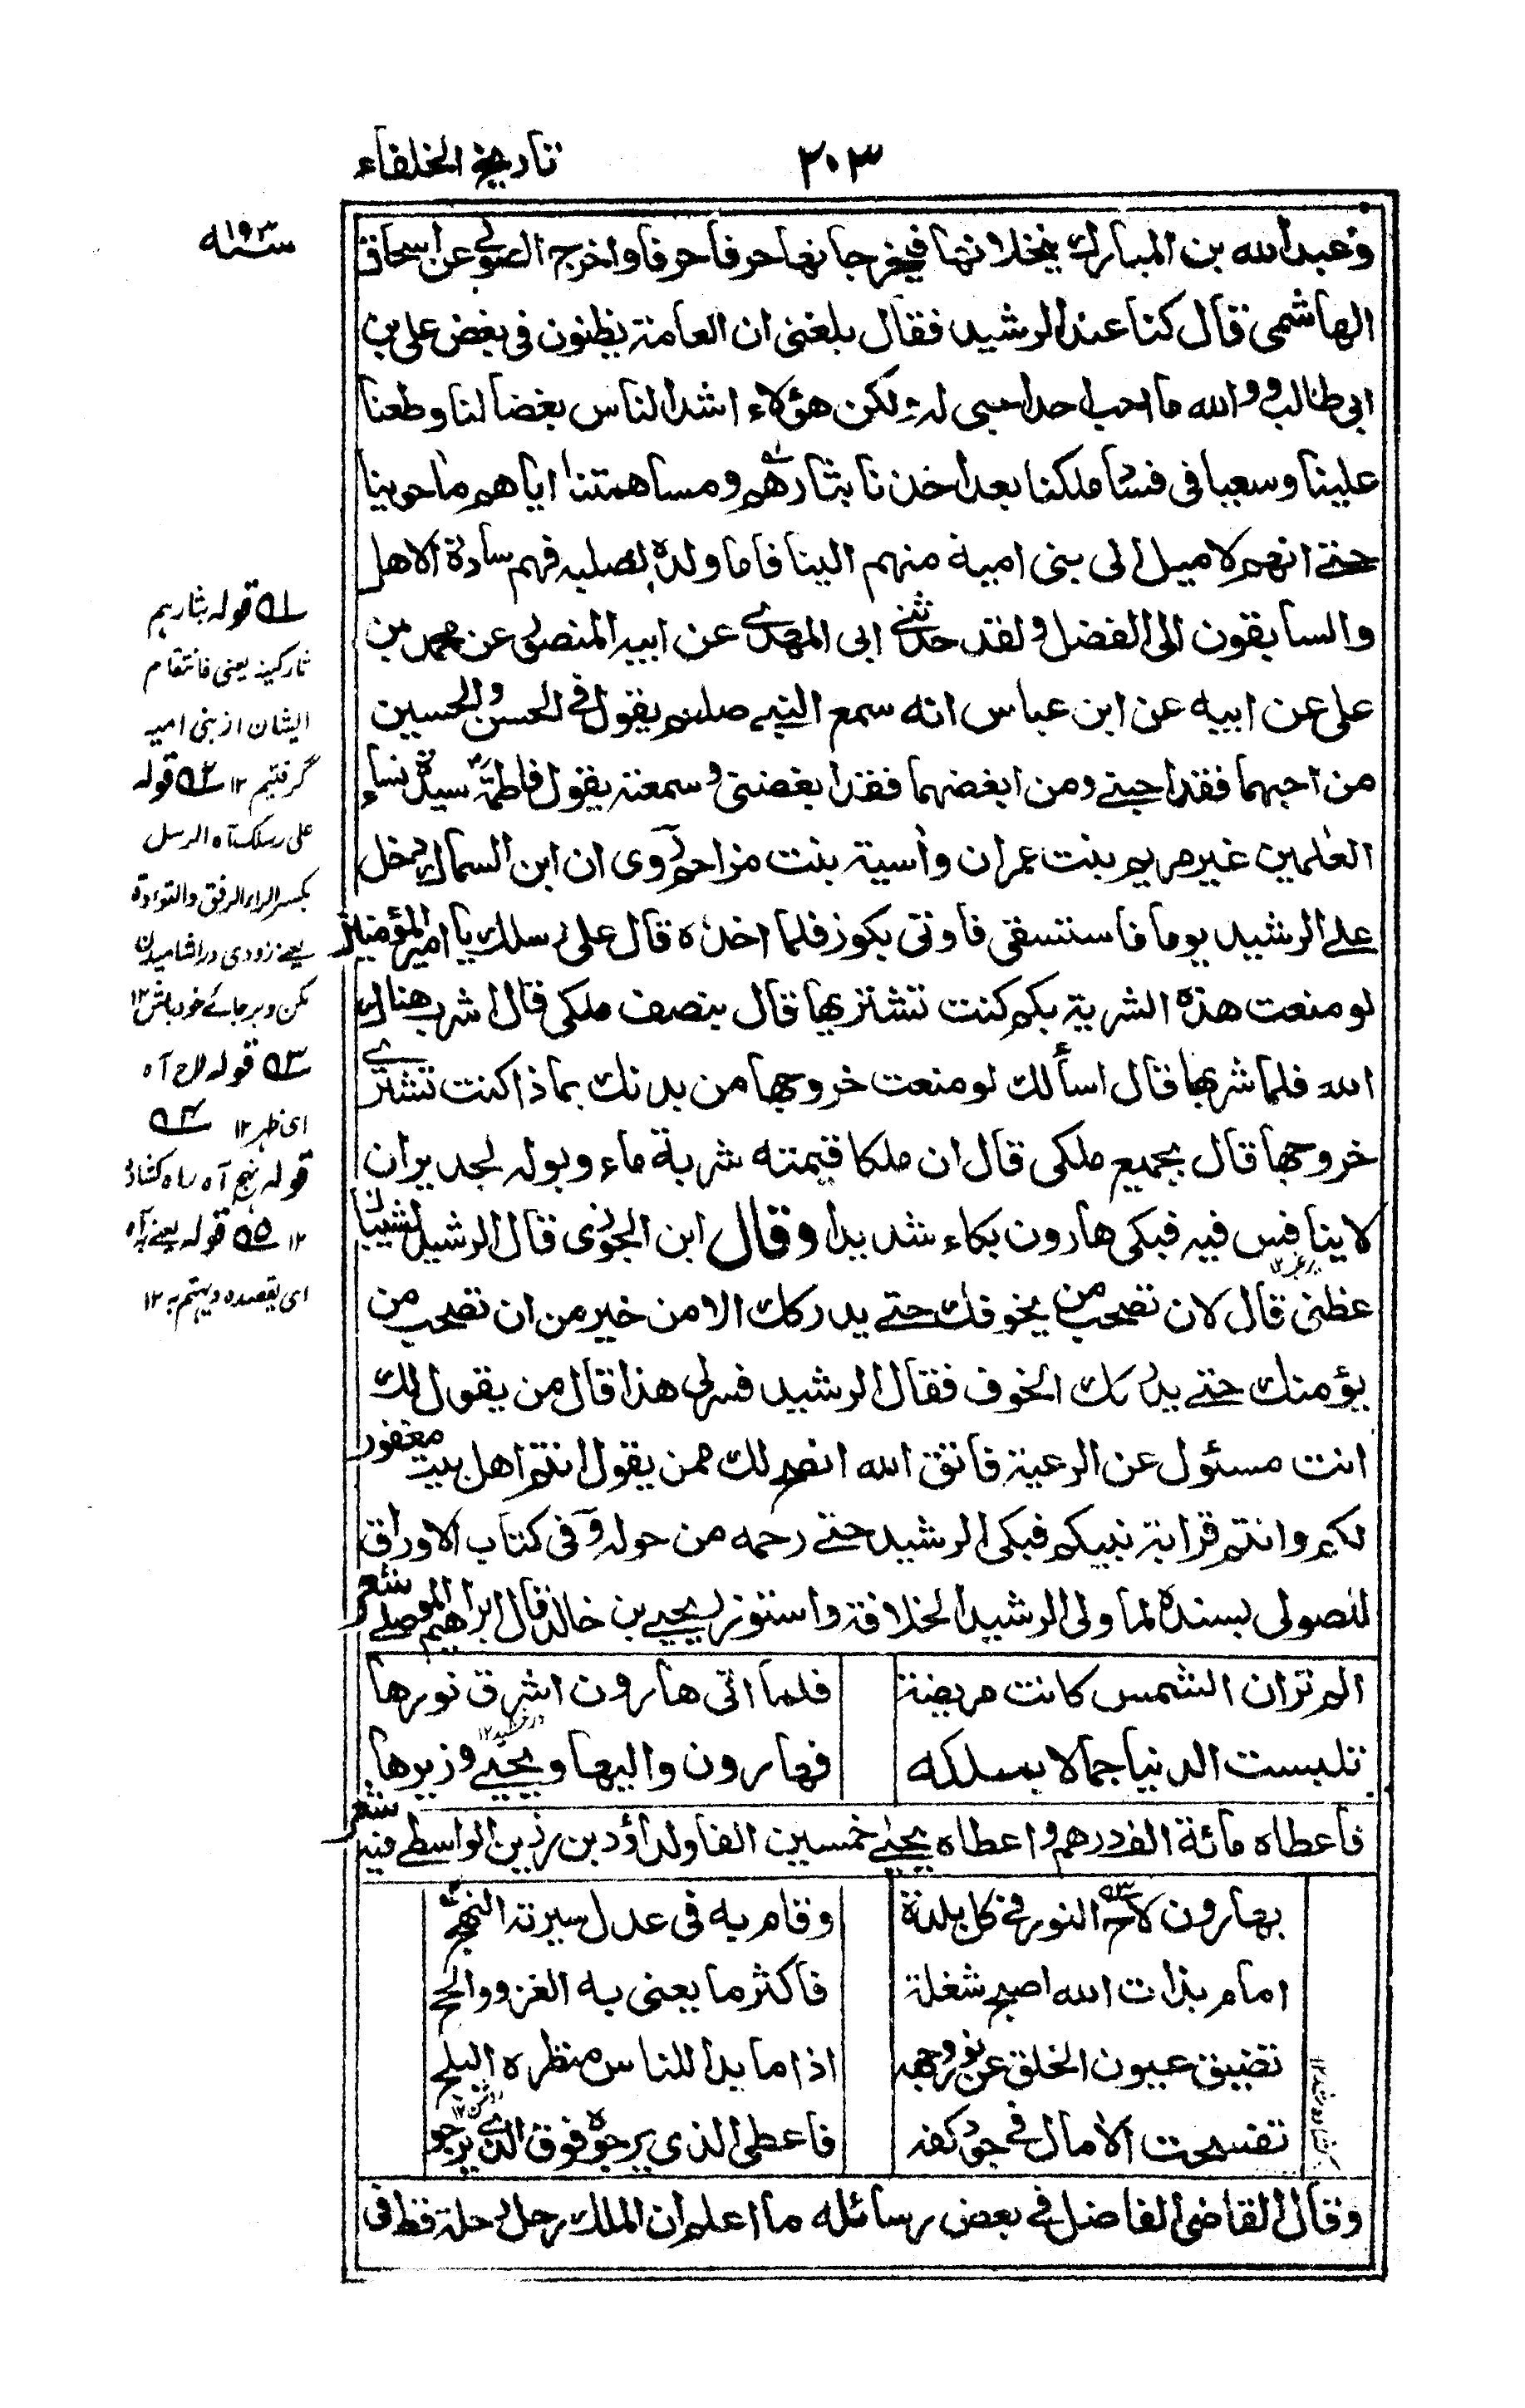 ٣٠٣
تاريخ الخلفاء
سنة ١٩٣
وعبدالله بن المبارك ينخلانها فيخرجانها حرفا حرفا واخرج الصولي عن اسحاق
الهاشمى قال كنا عند الرشيد فقال بلغنى ان العامة يظنون فى بغض على بن
ابى طالب و والله ما احب احدا حبى له ولكن هؤلاء اشد الناس بغضا لنا وطعنا
علينا وسعيا فى فساد ملكنا بعد اخذنا بثارهم ومساهمتنا اياهم ما حوينا
حتے انهم لاميل الى بنى امية منهم الينا فاما ولده لصلبه فهم سادة الاهل
والسابقون الى الفضل ولقد حدثنے ابى المهدے عن ابيه المنصور عن محمد بن
على عن ابيه عن ابن عباس انه سمع النبے صلعم يقول فے الحسن والحسين
من احبهما فقد احبنے ومن ابغضهما فقد ابغضنى وسمعته يقول فاطمة سيدة نساء
العٰلمين غير مريم بنت عمران واٰسية بنت مزاحم روى ان ابن السماك دخل
علے الرشيد يوما فاستسقى فاوتى بكوز فلما اخذه قال على رسلك يا امير المؤمنين
لو منعت هذه الشربة بكم كنت تشتريها قال بنصف ملكى قال اشرب هناك
الله فلما شربها قال اسألك لو منعت خروجها من بدنك بماذا كنت تشترے
خروجها قال بجميع ملكى قال ان ملكا قيمته شربة ماء وبوله لجدير ان
لا ينافس فيه فبكى هارون بكاء شديدا وقال ابن الجوزى قال الرشيد لشيبان
عظنى قال لان تصحب من يخوفك حتے يدركك الامن خير من ان تصحب من
يؤمنك حتے يدركك الخوف فقال الرشيد فسر لى هذا قال من يقول لك
انت مسئول عن الرعية فاتق الله انصح لك ممن يقول انتم اهل بيت مغفور
لكم وانتم قرابة نبيكم فبكى الرشيد حتے رحمه من حوله وفى كتاب الاوراق
للصولى بسنده لما ولى الرشيد الخلافة واستوزر يحيےٰ بن خالد قال ابراهيم الموصلے شعر
الم تر ان الشمس كانت مريضة فلما اتى هارون اشرق نورها
تلبست الدنيا جمالا بملكه فهارون واليها ويحيےٰ وزيرها
فاعطاه مائة الف درهم واعطاه يحيےٰ خمسين الفا ولداؤد بن رزين الواسطے فيه شعر
بهارون لاح النور فے كل بلدة وقام به فى عدل سيرته النهج
امام بذات الله اصبح شغله فاكثر ما يعنى به الغزو والحج
تضيق عيون الخلق عن نور وجهه اذا ما بدا للناس منظره البلج
تفسحت الاٰمال فے جود كفه فاعطى الذى يرجوه فوق الذے يرجو
وقال القاضى الفاضل فے بعض رسائله ما اعلم ان الملك رحل رحلة قط فى
ـ١ـه قوله بثارهم
ثار كينه يعنى ما انتقام
ايشان از بنى اميه
گرفتيم ١٢ ـ٢ـه قوله
على رسلك آه الرسل
بكسر الراء الرفق والتوءدة
يعنے زودى در آشاميدن
مكن و بر جائے خود باش ١٢
ـ٣ـه قوله لاح آه
اى ظهر ١٢ ـ٤ـه
قوله نهج آه راه كشاده
١٢ ـ٥ـه قوله يعنے به آه
اى يقصده ويهتم به ١٢